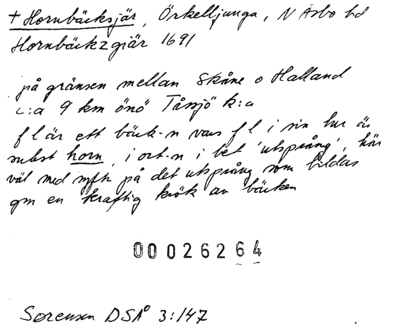 + Hornbäcksjär, Örkelljunga, N Åsbo hd
Hornbäckzgiär 1691
på gränsen mellan Skåne o Halland
c:a 9 km önö Tåsjö k:a
f l är ett bäck-n vars f l i sin tur är
subst horn, i ort-n i bet 'utsprång', här
väl med syftn på det utsprång som bildas
gm en kraftig krök av bäcken
00026264
Sørensen DSÅ 3:147